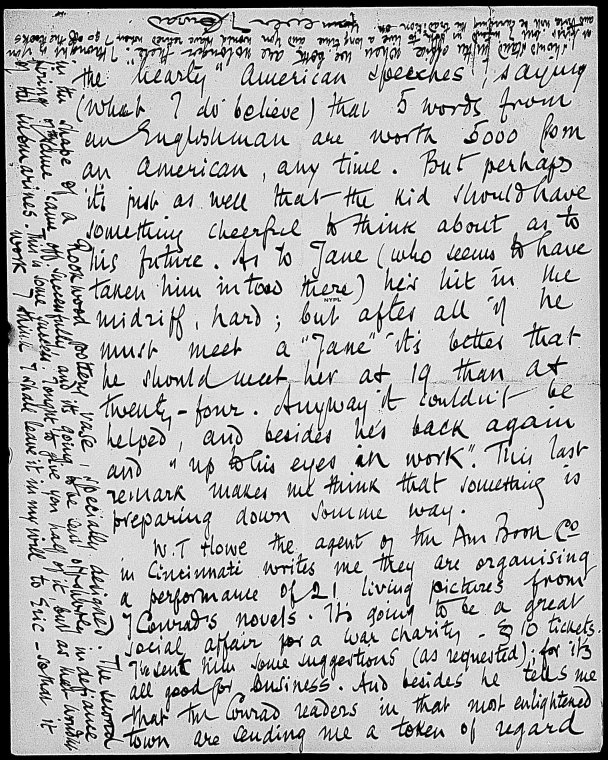 the "hearty" American speeches, saying
(what I do believe) that 5 words from
an Englishman are worth 5000 from
an American, any time. But perhaps
its just as well that the kid should have
something cheerful to think about as to
his future. As to Jane (who seems to have
taken him in too there) he's hit in the
NYPL
midriff, hard; but after all if he
must meet a "Jane" it's better that
he should meet her at 19 than at
twenty-four. Anyway it couldn't be
helped, and besides he's back again
and "up to his eyes in work". This last
remark makes me think that something is
preparing down Somme way.
W.T Howe the agent of the Am Book Co
in Cincinnati writes me they are organising
a performance of 21 living pictures from
J Conrad's novels. It's going to be a great
social affair for a war charity - $10 tickets.
I've sent him some suggestions (as requested); for it's
all good for business. And besides he tells me
that the Conrad readers in that most enlightened
town are sending me a token of regard
in the shape of a Rookwood pottery vase, specially designed. The second
firing of same came off successfully, and its going to be sent off shortly in defiance
of the submarines. This is some success. I ought to give you half of it, but at next wonder
work I think I shall leave it in my will to Eric - so that it
should stand in the office when we both are no longer there.
Yours ever J Conrad